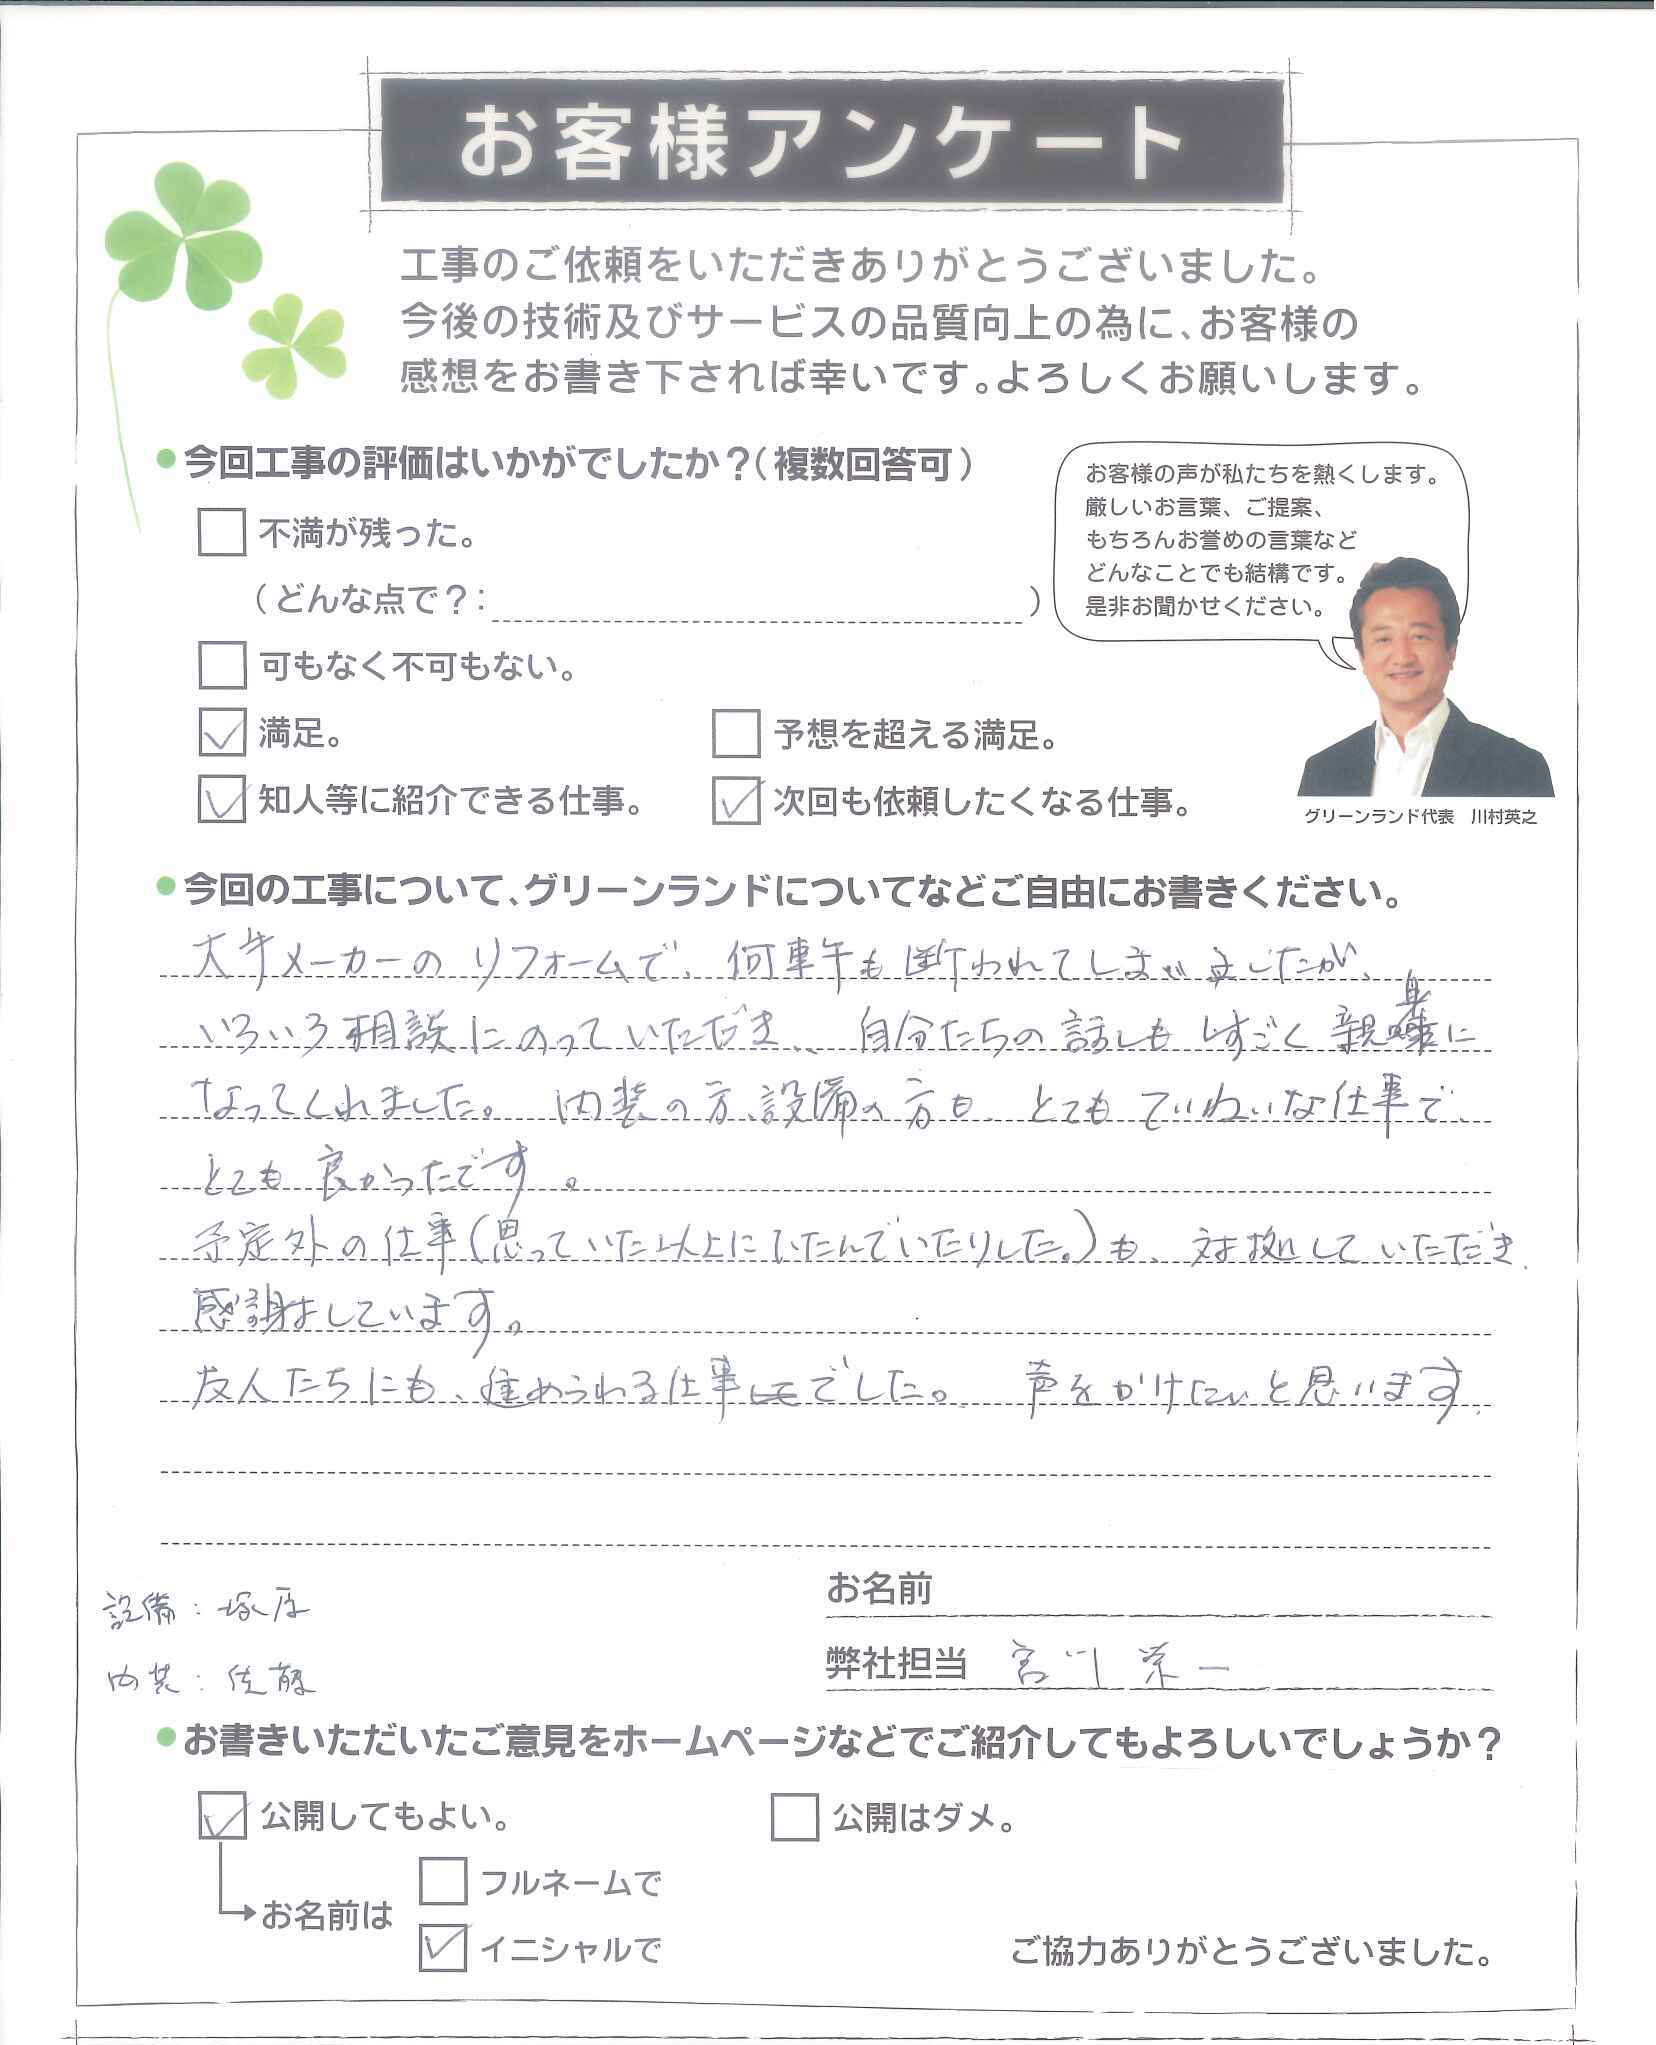 お客様アンケート
工事のご依頼をいただきありがとうございました。
今後の技術及びサービスの品質向上の為に、お客様の
感想をお書き下されば幸いです。よろしくお願いします。
今回工事の評価はいかがでしたか？（複数回答可）
不満が残った。
（どんな点で？：　）
可もなく不可もない。
満足。
予想を超える満足。
知人等に紹介できる仕事。
次回も依頼したくなる仕事。
お客様の声が私たちを熱くします。
厳しいお言葉、ご提案、
もちろんお誉めの言葉など
どんなことでも結構です。
是非お聞かせください。
グリーンランド代表　川村英之
今回の工事について、グリーンランドについてなどご自由にお書きください。
大手メーカーのリフォームで、何軒も断われてしまいましたが、
いろいろ相談にのっていただき、自分たちの話しもすごく親身に
なってくれました。内装の方、設備の方も、とてもていねいな仕事で、
とても良かったです。
予定外の仕事（思っていた以上にいたんでいたりした。）も、対処していただき、
感謝しています。
友人たちにも、進められる仕事でした。声をかけたいと思います。
お名前
設備：塚原
弊社担当　宮川 栄一
内装：佐藤
お書きいただいたご意見をホームページなどでご紹介してもよろしいでしょうか？
公開してもよい。
公開はダメ。
フルネームで
お名前は
イニシャルで
ご協力ありがとうございました。